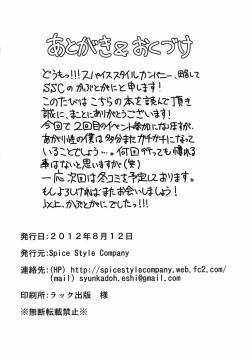 あとがき&おくづけ
どうもっ!!!スパイススタイルカンパニー、略して
SSCのかぶとがにと申します!
このたびはこちらの本を読んで頂き
誠に、まことにありがとうございます!
今回で2回目のイベント参加になりますが、
あがり症の僕は多分またガチガチになって
いることでしょう…。何回行っても慣れる
事はないと思いますが(笑)
一応次回は冬コミを予定しております。
もしよろしければまたお会いしましょう!
以上、かぶとがにでしたっ!!!
発行日:2012年8月12日
発行元:Spice Style Company
連絡先:(HP) http://spicestylecompany.web.fc2.com/
(mail) syunkadoh.eshi@gmail.com
印刷所:ラック出版 様
※無断転載禁止※